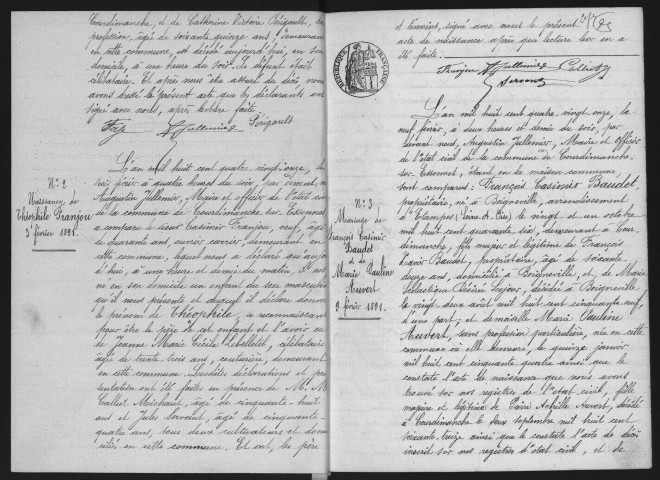 Courdimanche, et de Catherine Victoire Périgault, sans
profession, âgé de soixante quinze ans, demeurant
en cette commune, est décédé aujourd'hui, en son
domicile, à une heure du soir. Le défunt était
célibataire. Et après nous être assuré du décès nous
avons dressé le présent acte que les déclarants ont
signé avec nous, après lecture faite
Jullemier Périgault
N° 2
Naissance de
Théophile Franjou
3 février 1891.
L'an mil huit cent quatre vingt-onze, le
trois février à quatre heures du soir, par devant nous
Augustin Jullemier, Maire et officier de l'état civil
de la commune de Courdimanche, sur Essonnes
a comparu le sieur Casimir Franjou, veuf, âgé
de quarante ans, ouvrier carrier, demeurant en
cette commune, lequel nous a déclaré qu'aujour
d'hui, à une heure et demie du matin, il est
né en son domicile un enfant du sexe masculin
qu'il nous présente et auquel il déclare donner
le prénom de Théophile, se reconnaissant
pour être le père de cet enfant et l'avoir eu
de Jeanne Marie Cécile Lebelletel, célibataire
âgée de trente trois ans, couturière, demeurant
en cette commune. Lesdites déclarations et pré
sentation ont été faites en présence de M. M.
Calliet Michaut, âgé de cinquante-huit
ans et Jules Servant, âgé de cinquante
quatre ans, tous deux cultivateurs et domi
ciliés en cette commune. Et ont, les père
et témoins, signé avec nous le présent
acte de naissance après que lecture leur en a
été faite.
Franjou Jullemier Calliet
Servant
RÉPUBLIQUE FRANÇAISE
N° 3
Mariage de
François Casimir
Baudet
et de
Marie Pauline
Auvert
9 février 1891.
L'an mil huit cent quatre-vingt-onze, le
neuf février, à deux heures et demie du soir, par
devant nous, Augustin Jullemier, Maire et officier
de l'état civil de la commune de Courdimanche
sur-Essonnes, étant en la maison commune
sont comparus: François Casimir Baudet,
propriétaire, né à Boigneville, arrondissement
d'Etampes (Seine-et-Oise) le vingt et un octobre
mil huit cent quarante six, demeurant à Cour
dimanche, fils majeur et légitime de François
Baudet, propriétaire, âgé de soixante
douze ans, domicilié à Boigneville, et de Marie
décédée à Boigneville
le vingt deux août mil huit cent cinquante neuf,
d'une part; et demoiselle Marie Pauline
Auvert, sans profession particulière, née en cette
commune où elle demeure, le quinze janvier
mil huit cent cinquante quatre ainsi que le
constate l'acte de naissance que nous avons
trouvé sur nos registres de l'état civil, fille
majeure et légitime de Pierre Achille Auvert, décédé
à Courdimanche le deux septembre mil huit cent
soixante treize ainsi que le constate l'acte de décès
inscrit sur nos registres d'état civil, et de